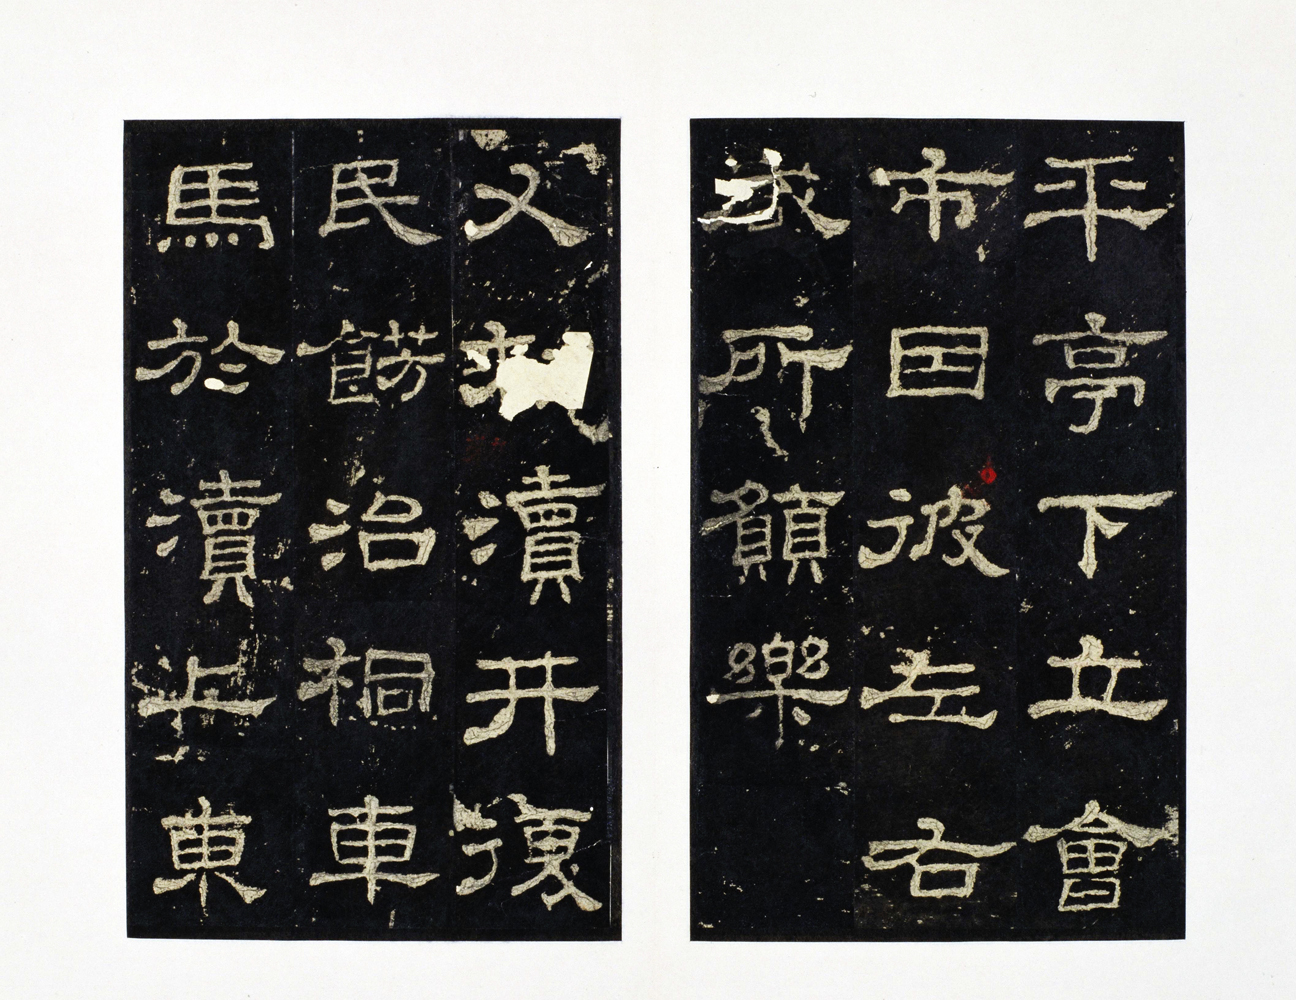 平亭下立會
市因彼左右
咸所願樂
又瀆井復
民餝治桐車
馬於瀆上東